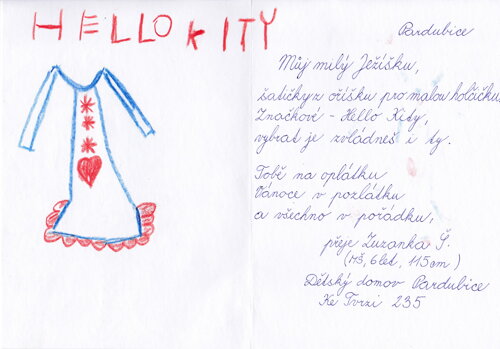 HELLO KITY
Pardubice
Můj milý Ježíšku,
šatičky z oříšku pro malou holčičku,
Značkové - Hello Kity,
vybrat je zvládneš i ty.
Tobě na oplátku
Vánoce v pozlátku
a všechno v pořádku,
přeje Zuzanka Š.
(MŠ, 6 let, 115 cm)
Dětský domov Pardubice
Ke Tvrzi 235